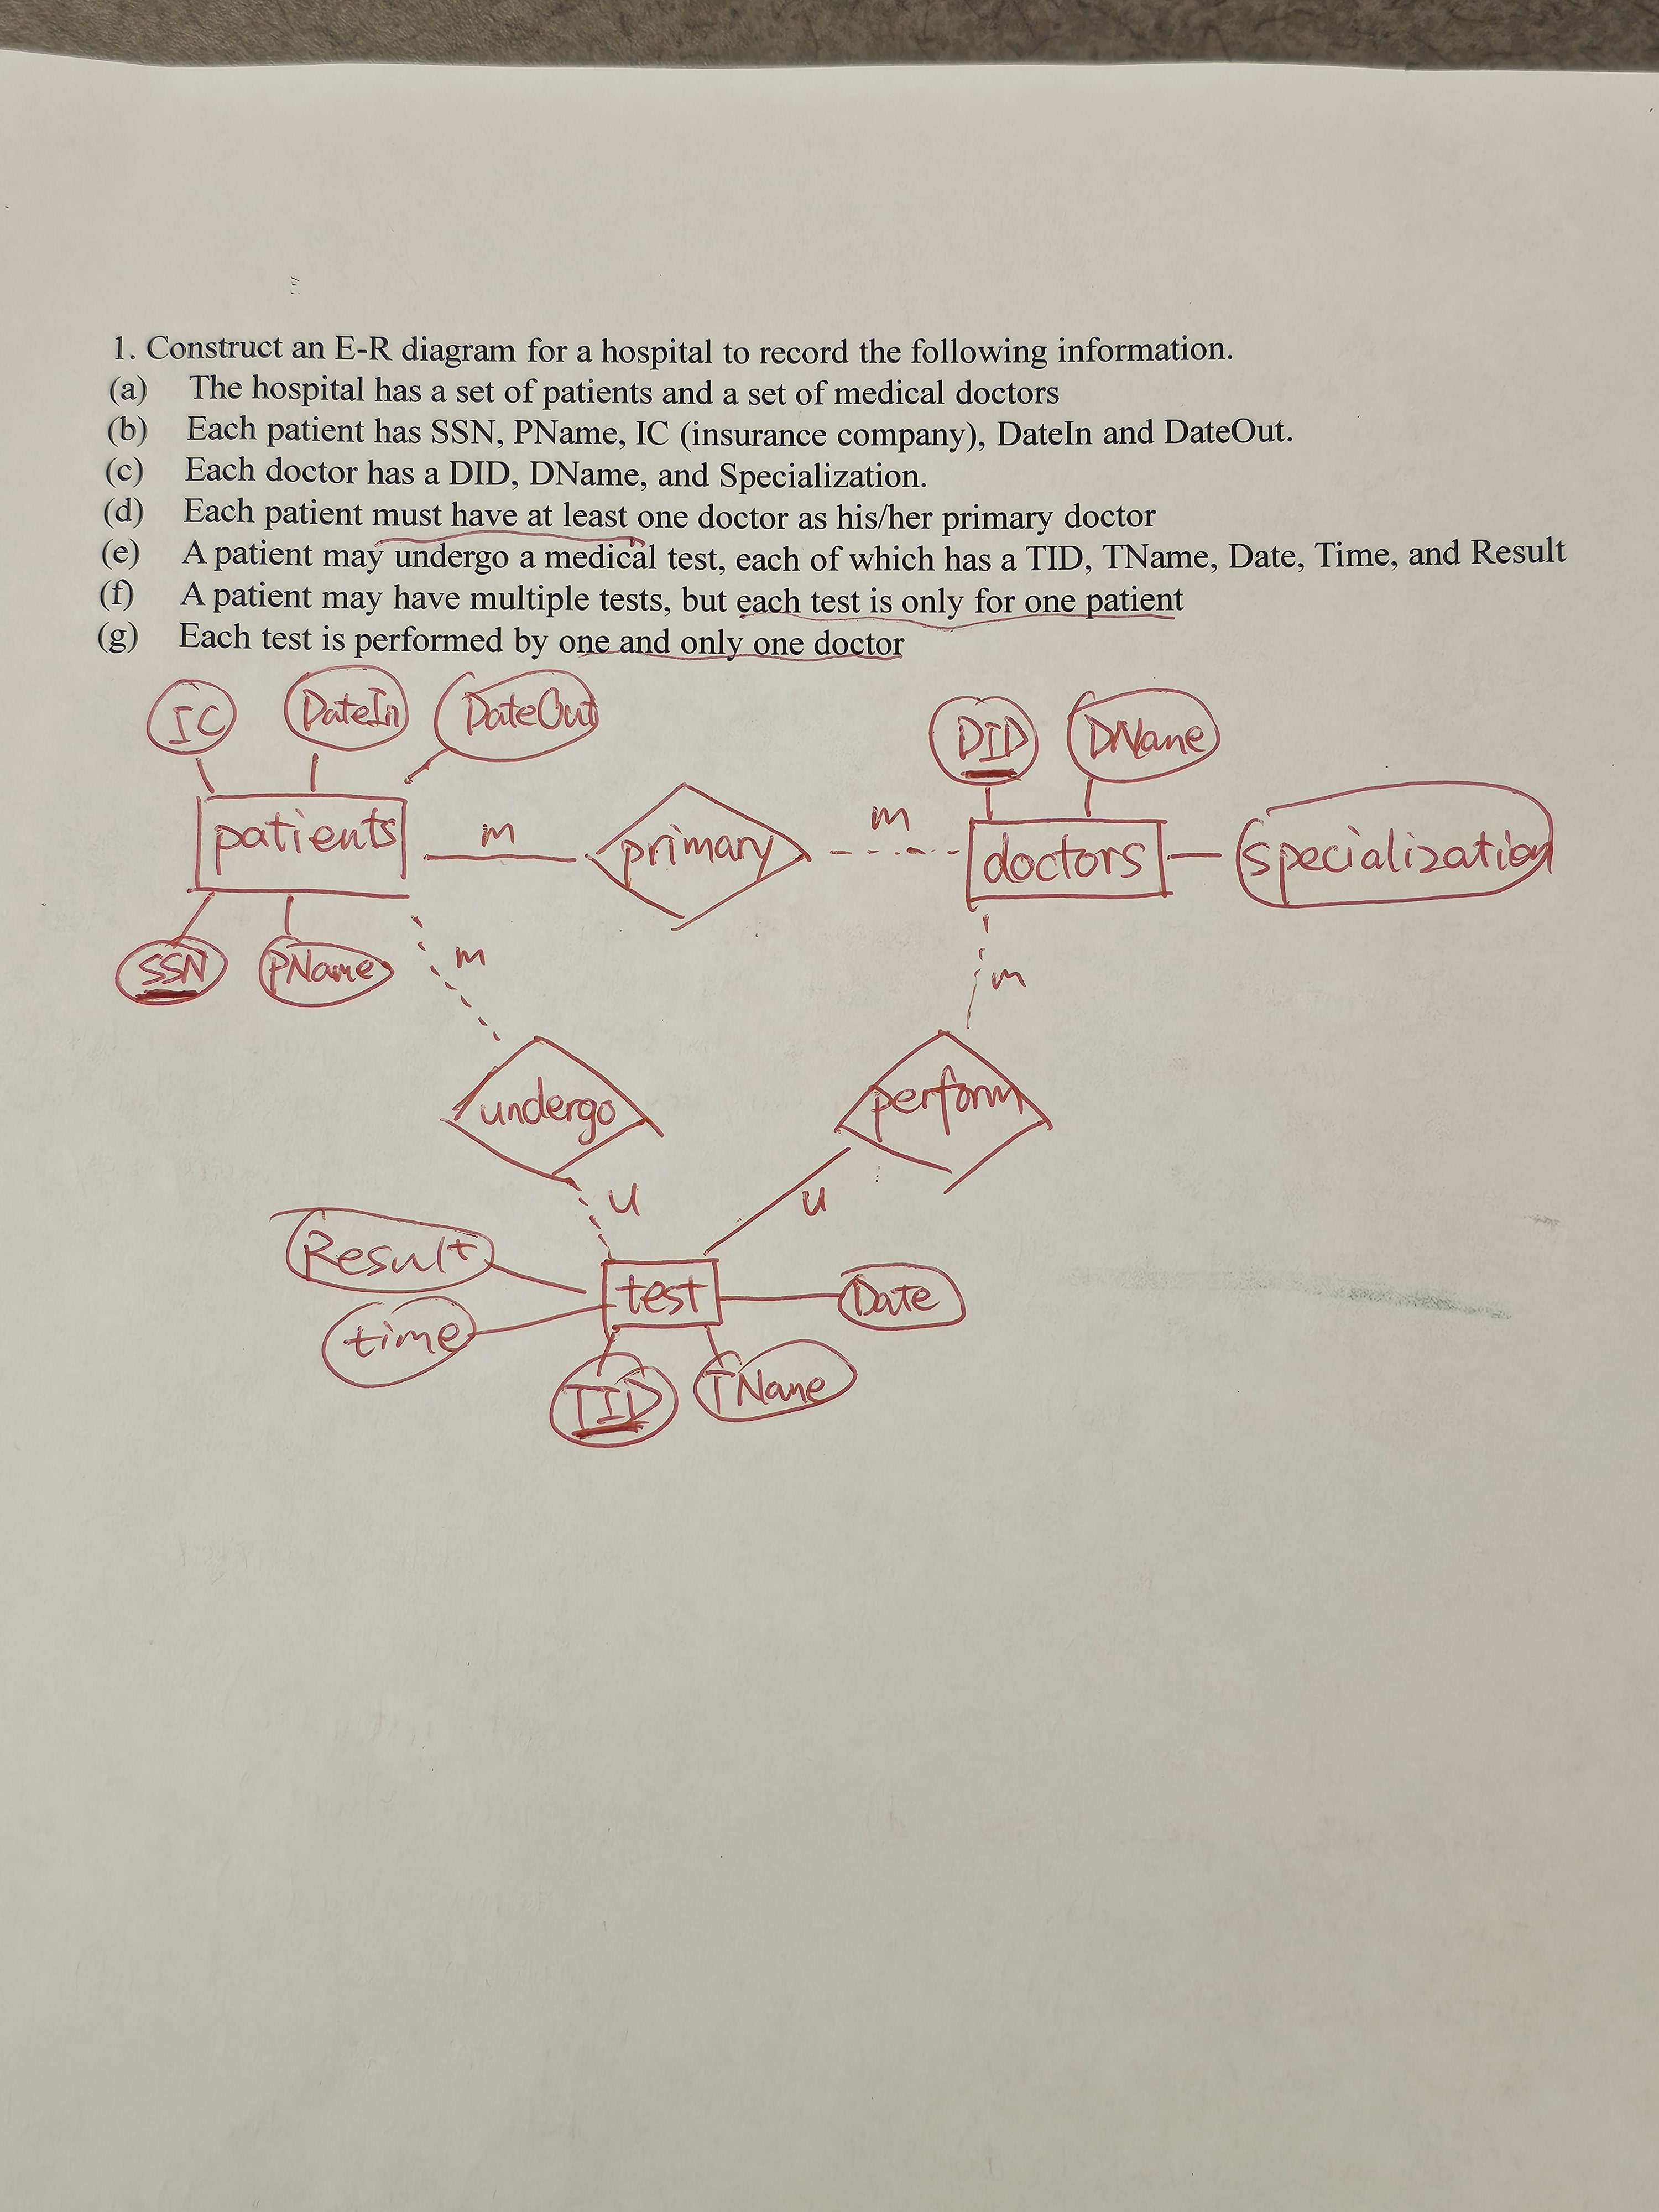 1. Construct an E-R diagram for a hospital to record the following information.
(a) The hospital has a set of patients and a set of medical doctors
(b) Each patient has SSN, PName, IC (insurance company), DateIn and DateOut.
(c) Each doctor has a DID, DName, and Specialization.
(d) Each patient must have at least one doctor as his/her primary doctor
(e) A patient may undergo a medical test, each of which has a TID, TName, Date, Time, and Result
(f) A patient may have multiple tests, but each test is only for one patient
(g) Each test is performed by one and only one doctor
IC DateIn DateOut DID DName
patients m primary m doctors specialization
SSN PName m m
undergo perform
u u
Result test Date
time
TID TName